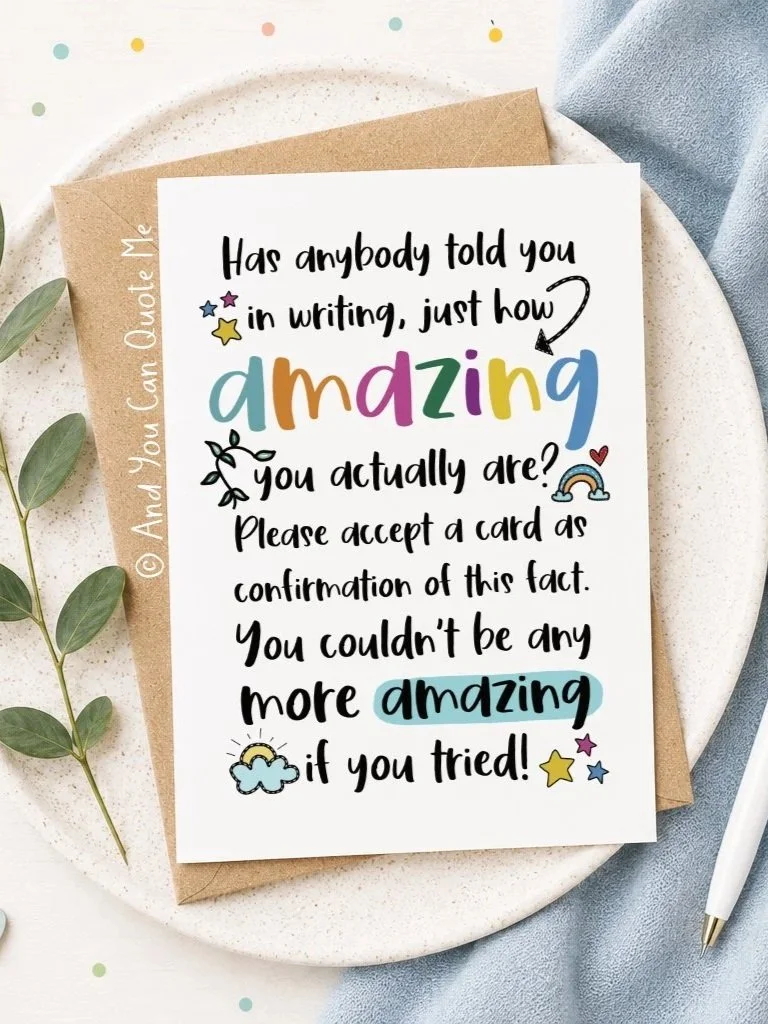 Has anybody told you
in writing, just how
amazing
you actually are?
Please accept a card as
confirmation of this fact.
You couldn't be any
more amazing
if you tried!
© And You Can Quote Me